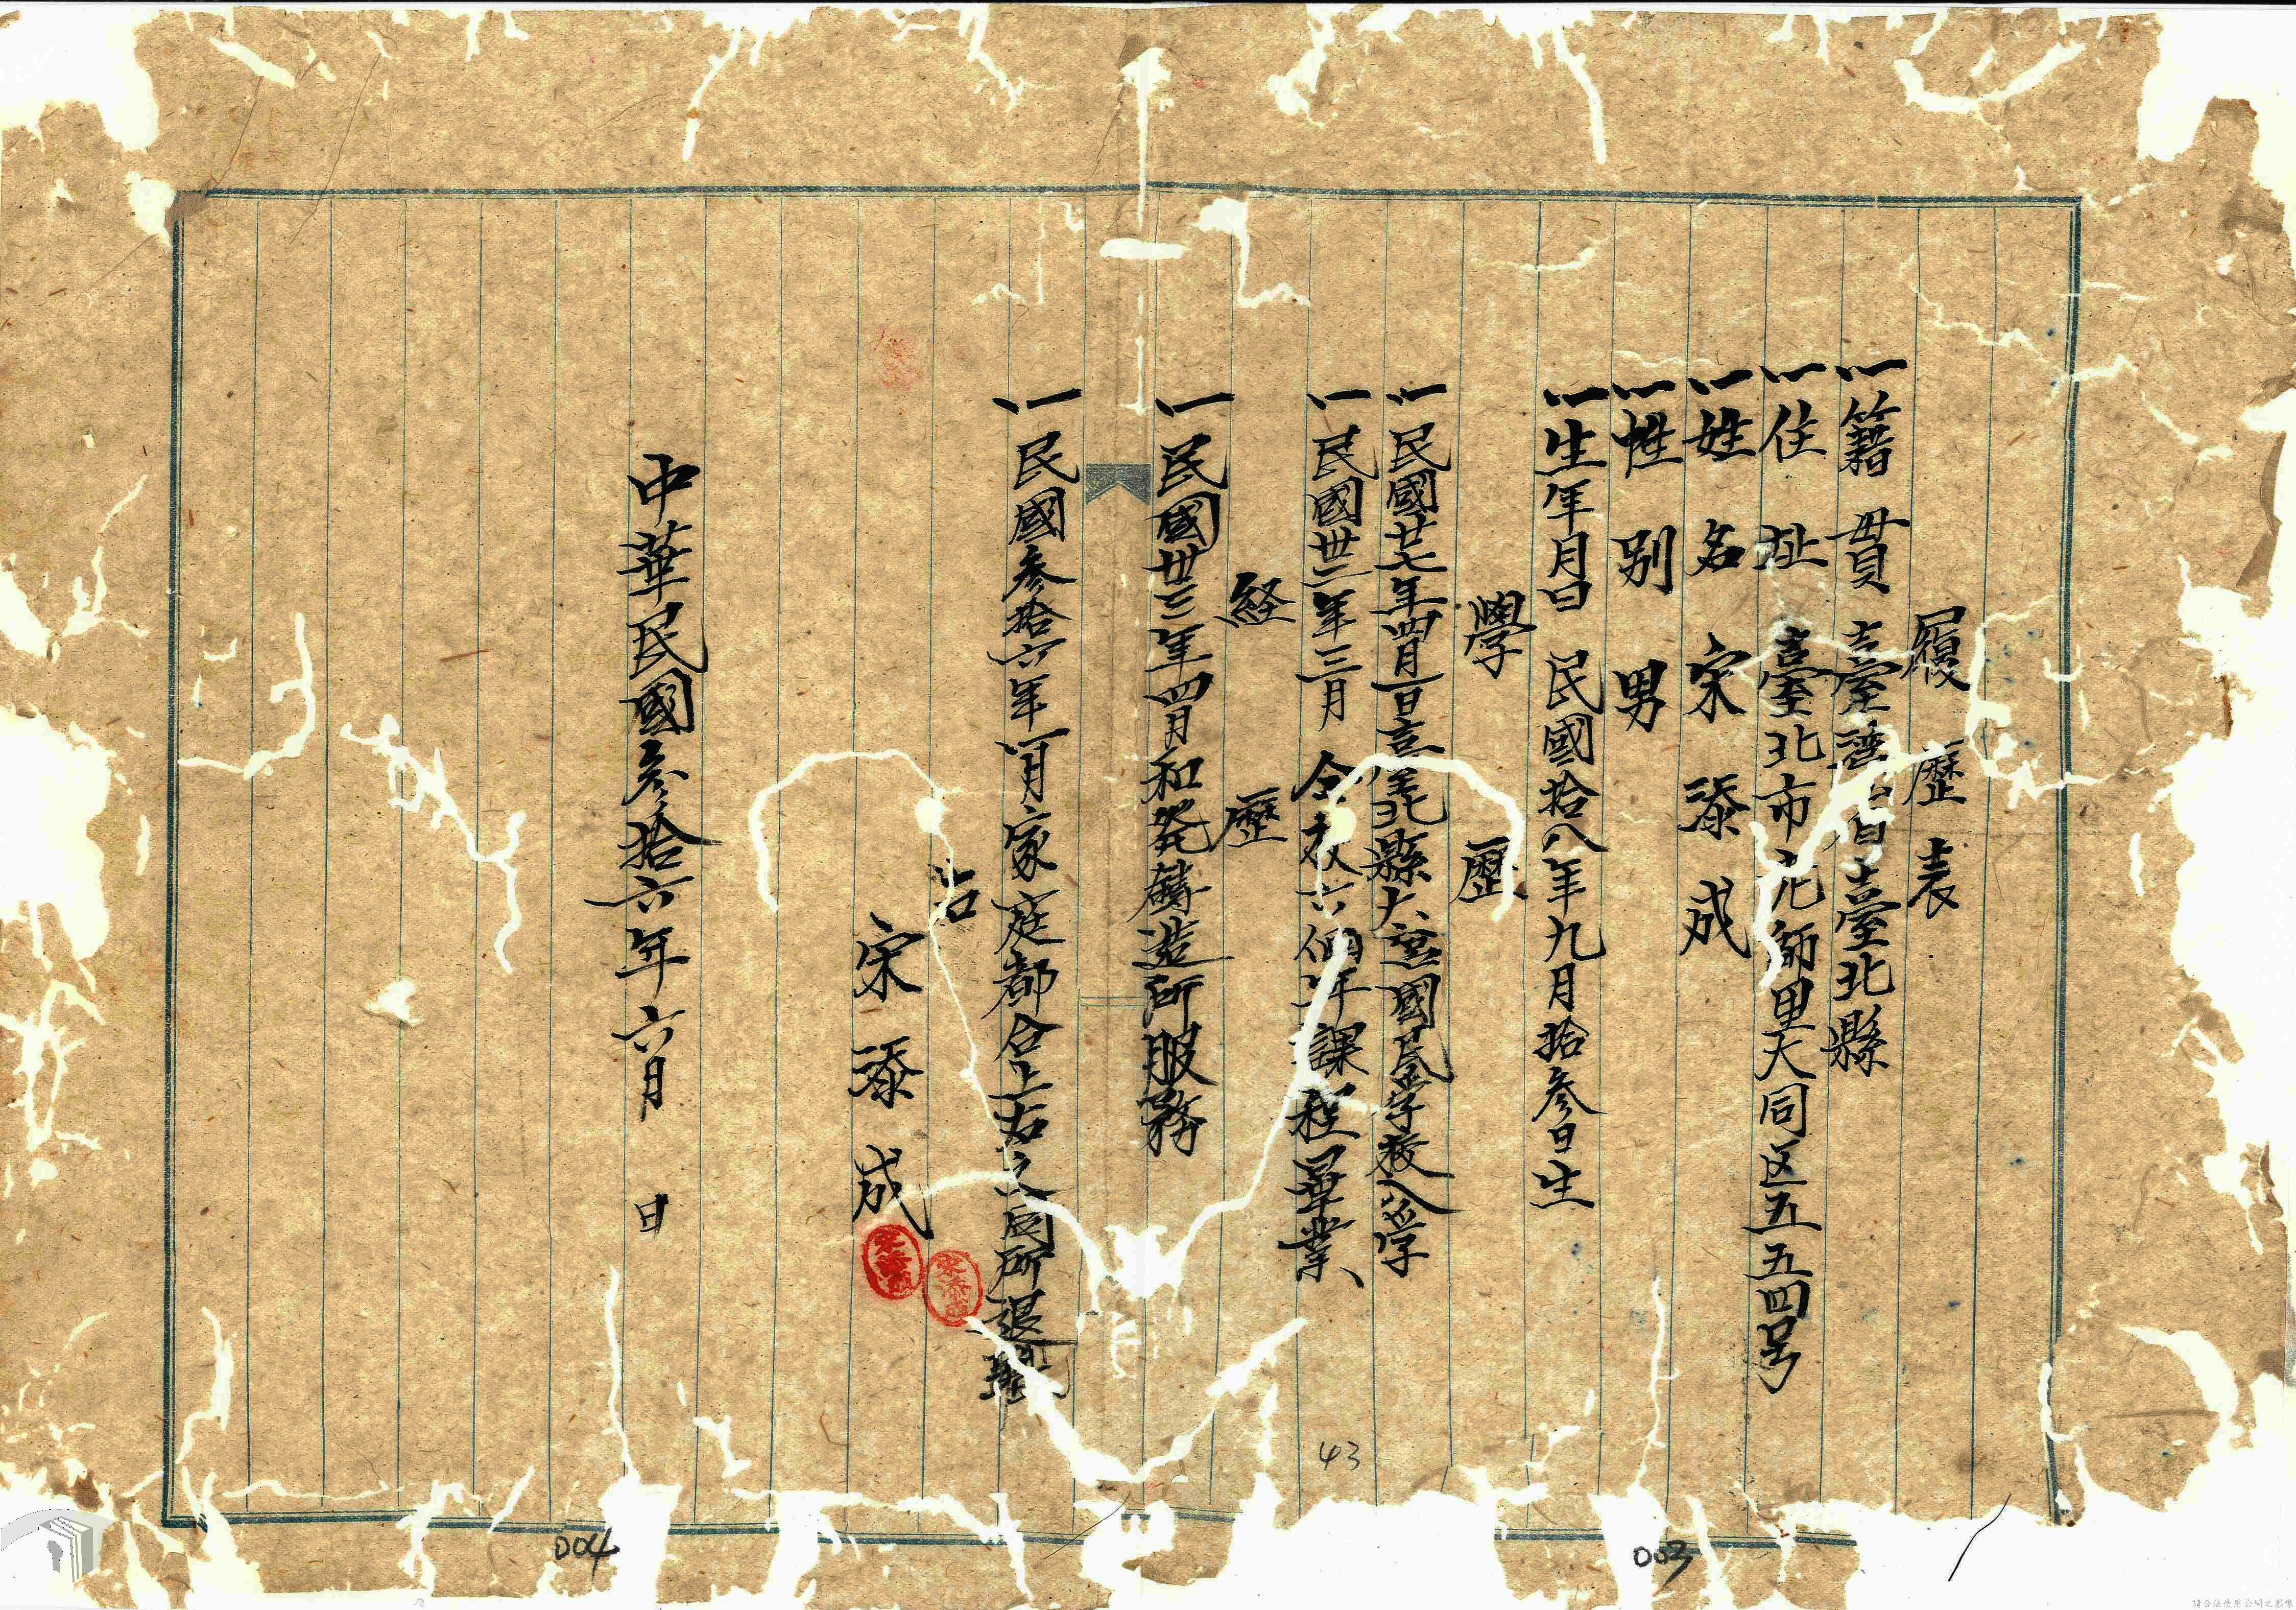 履歷表
一籍貫 臺灣省臺北縣
一住址 臺北市元師里大同区五五四号
一姓名 宋添成
一性別 男
一生年月日 民國拾八年九月拾參日生
學歷
一民國廿七年四月一日臺北縣大㞭國民学校入学
一民國卅三年三月 仝校六個年課程畢業、
経歷
一民國卅三年四月和発鋳造所服務
一民國參拾六年一月家庭都合上右之同所退職
右
宋添成
中華民國參拾六年六月 日
43
004
003
請合法使用公開之影像